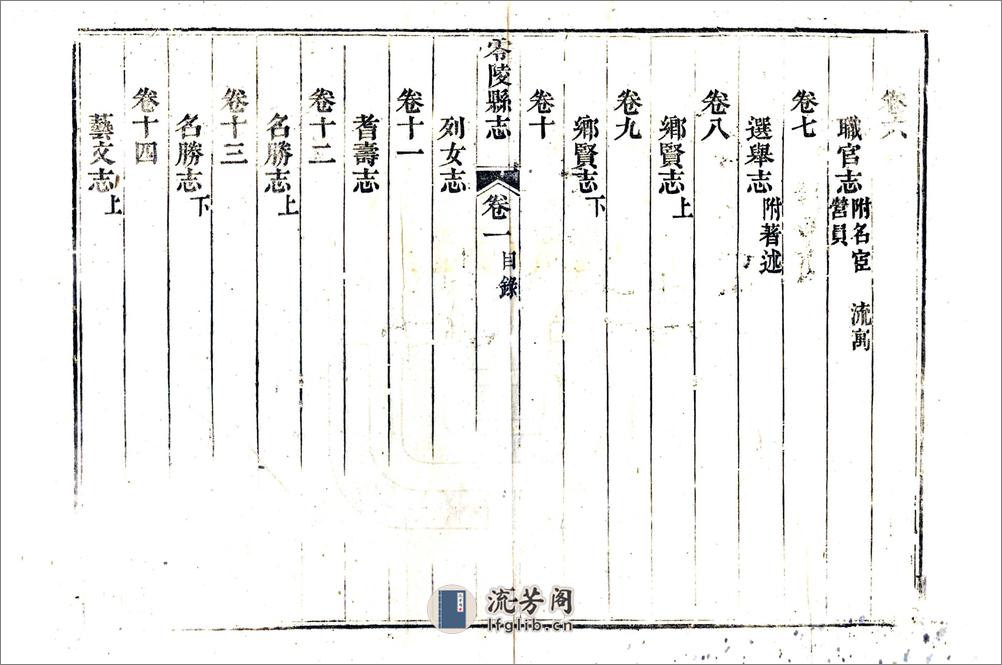 卷六
職官志 附名宦 流寓 營員
卷七
選舉志 附著述
卷八
鄉賢志上
卷九
鄉賢志下
卷十
零陵縣志 卷一 目錄
列女志
卷十一
耆壽志
卷十二
名勝志上
卷十三
名勝志下
卷十四
藝文志上
流芳阁
lfglib.cn